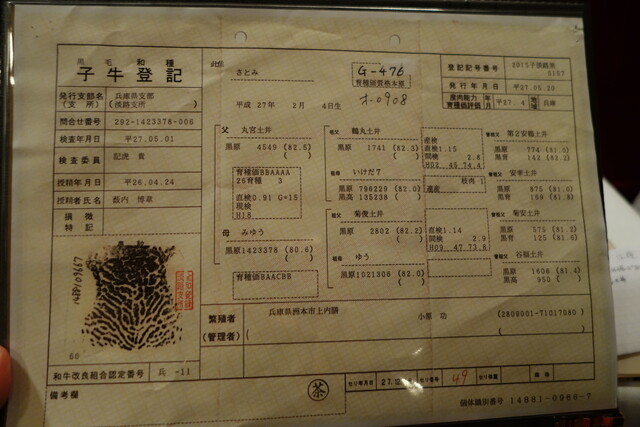 黒毛和種
子牛登記
発行支部名
(支所)
兵庫県支部
(淡路支所)
問合せ番号 292-1423378-006
検査年月日 平27.05.01
検査委員 記虎
授精年月日 平26.04.24
授精者氏名 薮内 博章
損徴
特記
1488109667
60
和牛改良組合認定番号 兵 -11
備考欄
さとみ
平成 27年 2月 4日生
G-476
育種価資格本原
オ-0908
登記記号番号 2015子淡路黒
5157
発行年月日 平27.05.20
産肉能力
育種価評価 年月 平27. 4 地域 兵庫
父 丸宮土井
黒原 4549 (82.5)
育種価BBAAAA
26育種 3
直検0.91 G=15
現検
H15
母 みゆう
黒原1423378 (80.6)
育種価BAACBB
祖父 鶴丸土井
黒原 1741 (82.3)
産検
直検1.15
間検 2.8
H02 45,74.4
祖母 いけだ7
黒原 796229 (82.0)
黒高 135238
枝肉 1
遺産
祖父 菊俊土井
黒原 2802 (82.2)
直検1.14
間検 2.9
H09 47,73.6
祖母 ゆう
黒原1021306 (82.0)
曽祖父 第2安鶴土井
曽祖父 安幸土井
黒原 875 (81.0)
黒育 169 (81.8)
曽祖父 菊安土井
黒原 575 (81.2)
黒育 125 (81.6)
曽祖父 谷福土井
黒原 1606 (81.4)
黒高 950
繁殖者
(管理者)
兵庫県洲本市上内膳 小原 功 (2809001-71017080)
茶
セリ年月日 27.
セリ番号 49
価格
個体識別番号 14881-0966-7